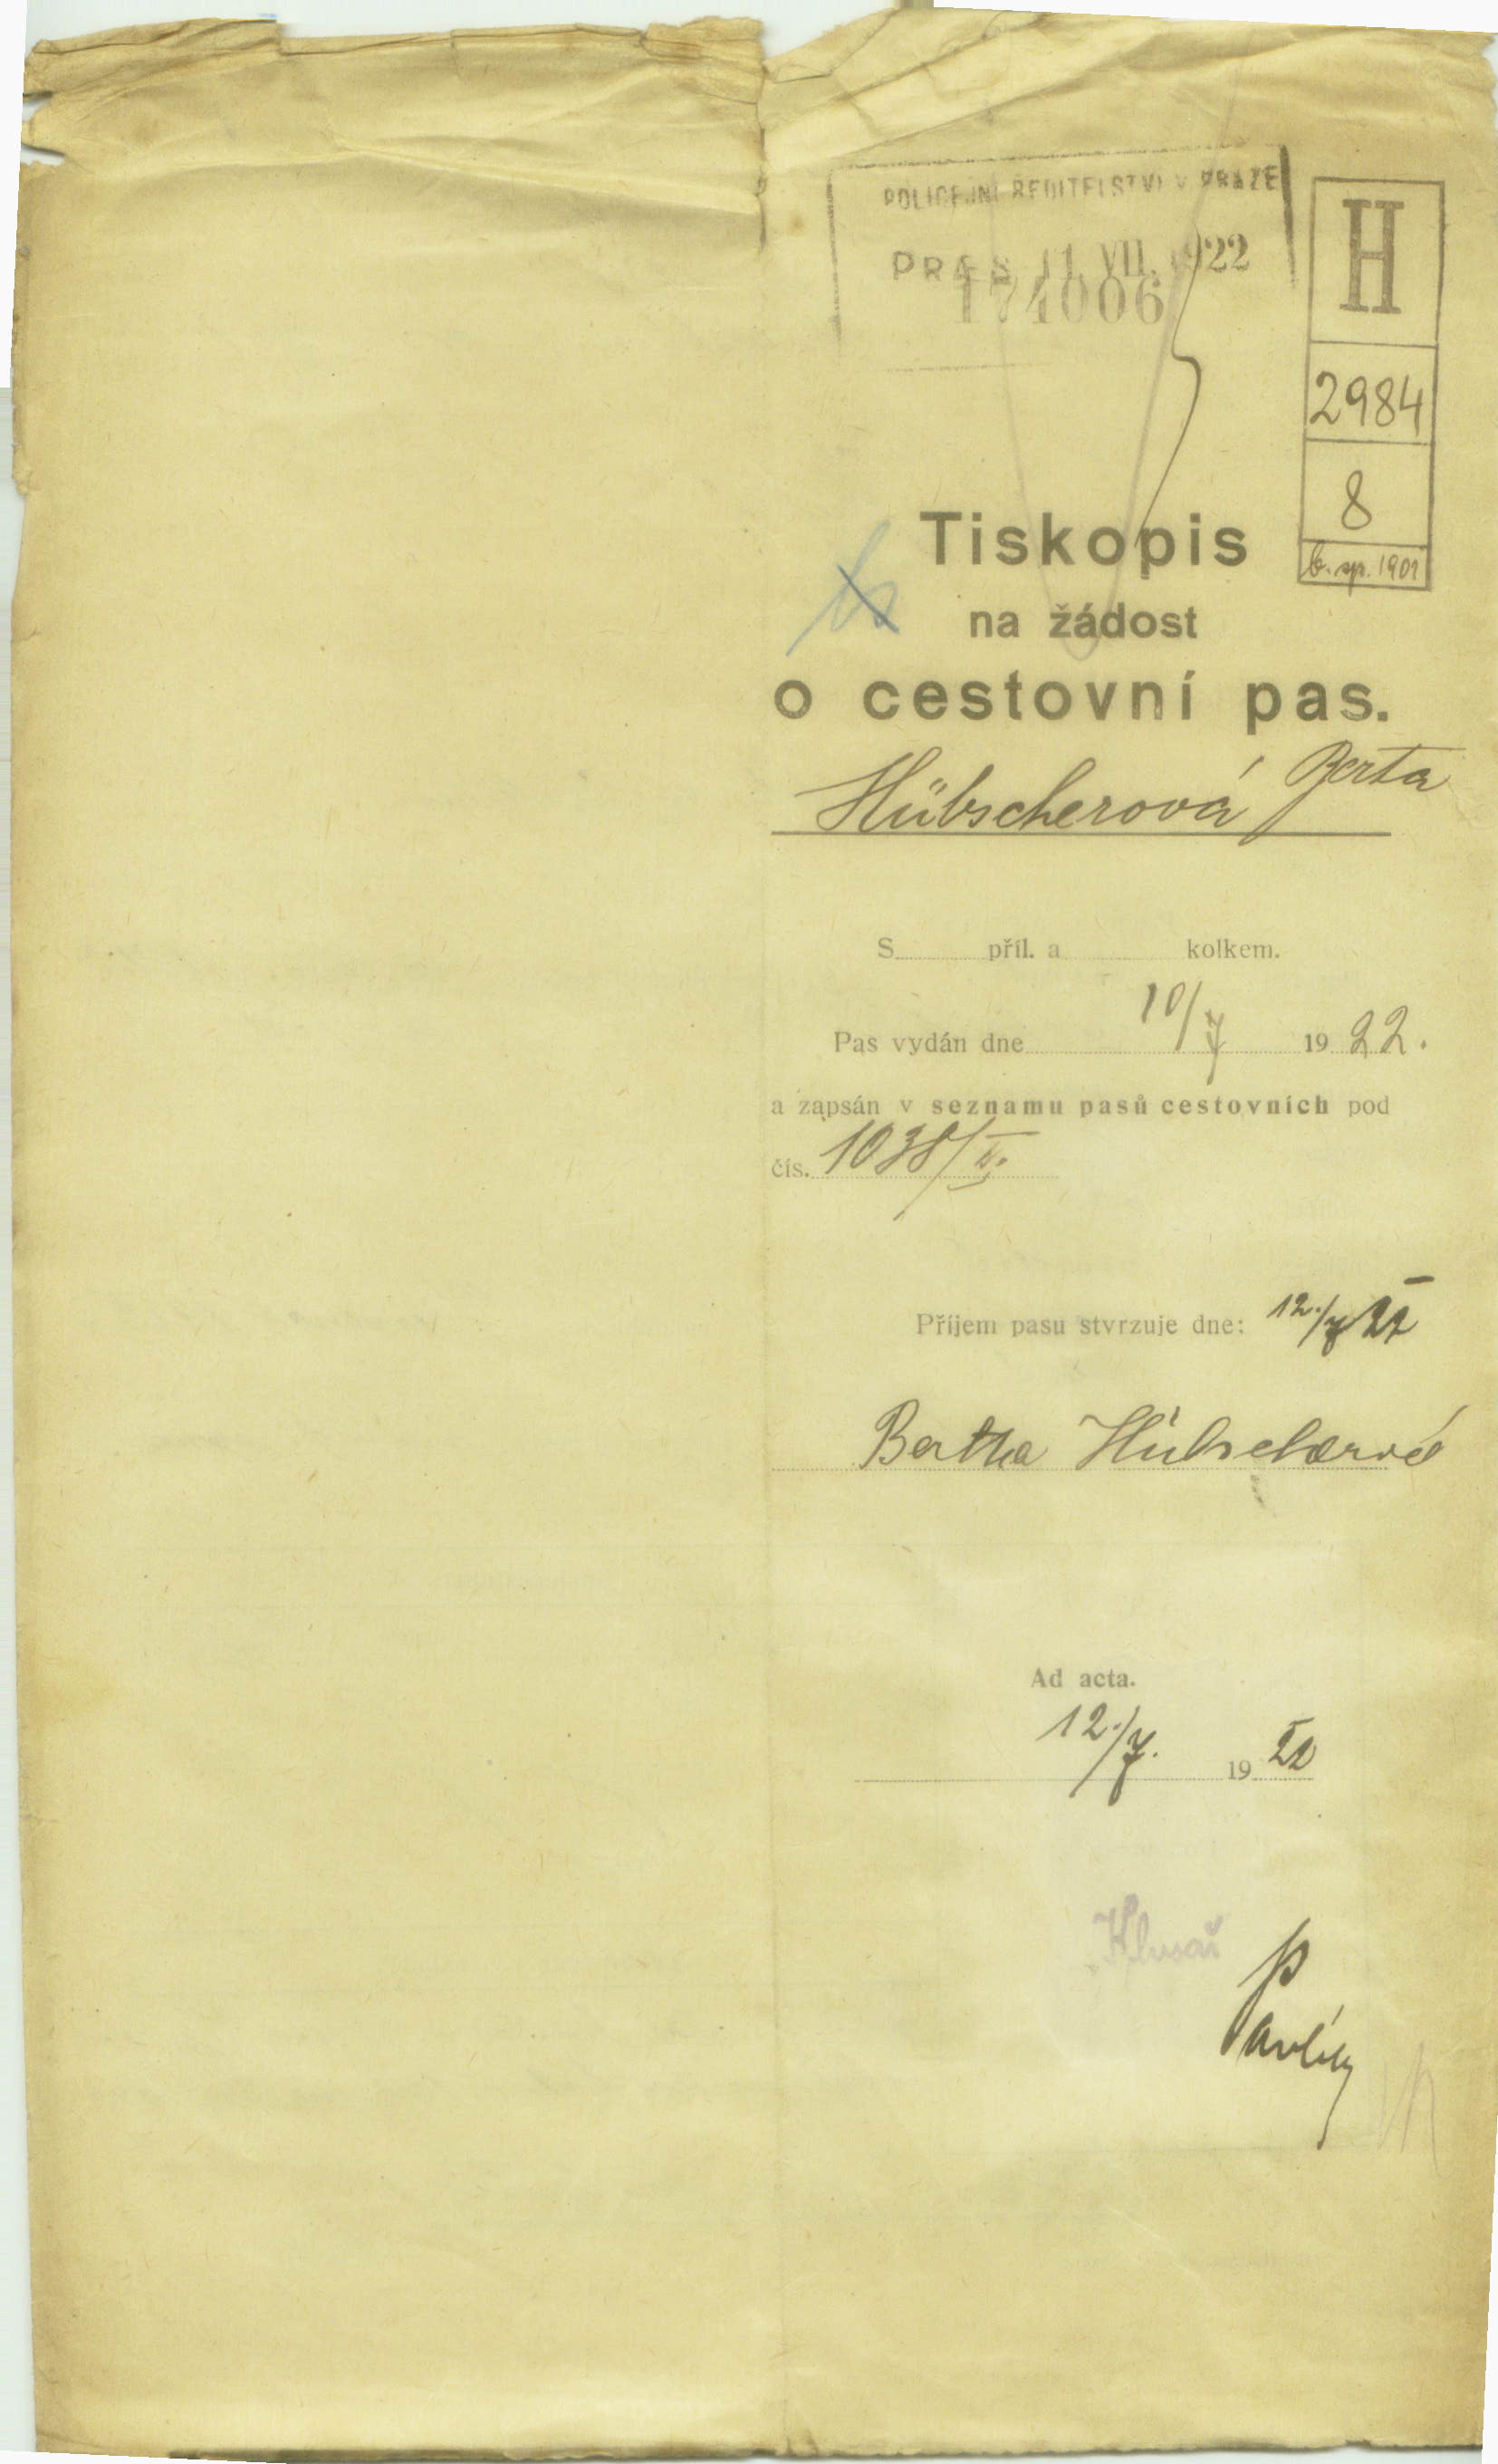 POLICEJNÍ ŘEDITELSTVÍ V PRAZE
PRAES 11. VII. 1922
174006
H
2984
8
b. sp. 1901
Tiskopis
na žádost
o cestovní pas.
Hübscherová Berta
S příl. a kolkem.
Pas vydán dne 10/7 1922.
a zapsán v seznamu pasů cestovních pod
čís. 1038/II.
Příjem pasu stvrzuje dne: 12./7 22
Bertha Hübscherová
Ad acta.
12./7. 1922